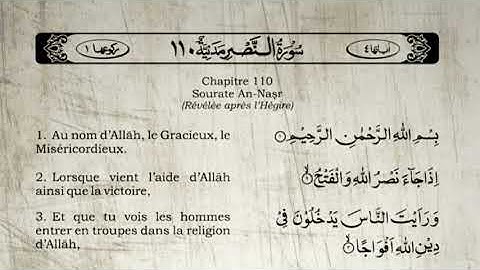 اٰیاتھا ٤ سُوْرَةُ النَّصْرِ مَدَنِيَّةٌ ١١٠ رکوعھا ١
Chapitre 110
Sourate An-Naṣr
(Révélée après l'Hégire)
1. Au nom d'Allāh, le Gracieux, le
Miséricordieux.
بِسْمِ اللّٰهِ الرَّحْمٰنِ الرَّحِيْمِ ۝١
2. Lorsque vient l'aide d'Allāh
ainsi que la victoire,
اِذَا جَآءَ نَصْرُ اللّٰهِ وَالْفَتْحُ ۝٢
3. Et que tu vois les hommes
entrer en troupes dans la religion
d'Allāh,
وَرَاَيْتَ النَّاسَ يَدْخُلُوْنَ فِيْ
دِيْنِ اللّٰهِ اَفْوَاجًا ۝٣